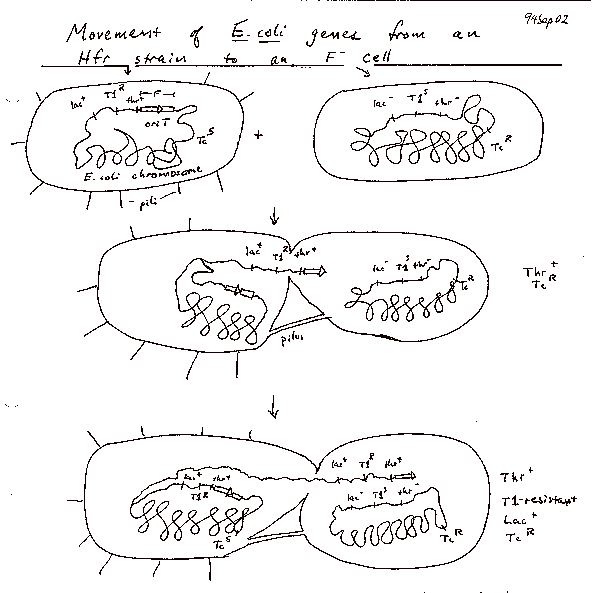 94Sep02
Movement of E. coli genes from an
Hfr strain to an F⁻ cell
lac⁺ T1ᴿ thr⁺ F
oriT
Tcˢ
E. coli chromosome
pili
+
lac⁻ T1ˢ thr⁻
Tcᴿ
lac⁺ T1ᴿ thr⁺
lac⁻ T1ˢ thr⁻
Tcᴿ
pilus
Thr⁺
Tcᴿ
lac⁺ T1ᴿ thr⁺
lac⁺ thr⁺
T1ᴿ
lac⁻ T1ˢ thr⁻
Tcˢ
Tcᴿ
Thr⁺
T1-resistant
Lac⁺
Tcᴿ